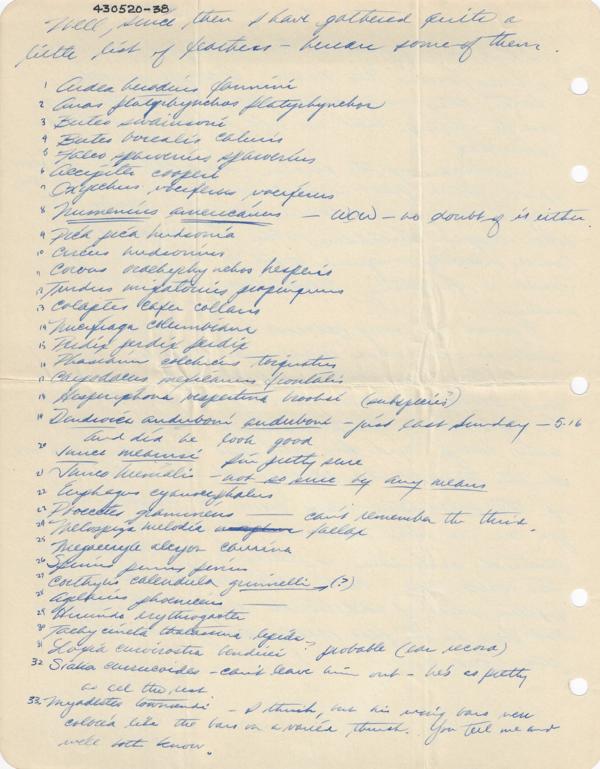 430520-38
Well, since then I have gathered quite a
little list of feathers - herein some of them.
1 Ardea herodias fannini
2 Anas platyrhynchos platyrhynchos
3 Buteo swainsoni
4 Buteo borealis calurus
5 Falco sparverius sparverius
6 Accipiter cooperi
7 Oxyechus vociferus vociferus
8 Numenius americanus - WOW - no doubt of it either.
9 Pica pica hudsonia
10 Circus hudsonius
11 Corvus brachyrhynchos hesperis
12 Turdus migratorius propinquus
13 Colaptes cafer collaris
14 Nucifraga columbiana
15 Perdix perdix perdix
16 Phasianus colchicus torquatus
17 Carpodacus mexicanus frontalis
18 Hesperiphona vespertina brooksi (subspecies?)
19 Dendroica auduboni auduboni - just last Sunday - 5-16
and did he look good
20 Junco mearnsi I'm pretty sure
21 Junco hiemalis - not so sure by any means
22 Euphagus cyanocephalus
23 Pooecetes gramineus — can't remember the third.
24 Melospiza melodia fallax
25 Megaceryle alcyon caurina
26 Spinus pinus pinus
27 Corthylio calendula grinnelli (?)
28 Agelaius phoeniceus —
29 Hirundo erythrogaster
30 Tachycineta thalassina lepida
31 Loxia curvirostra bendirei ? probable (ear record)
32 Sialia currucoides - can't leave him out - he's as pretty
as all the rest
33. Myadestes townsendi - I think, but his wing bars were
colored like the bars on a varied thrush. You tell me and
we'll both know.